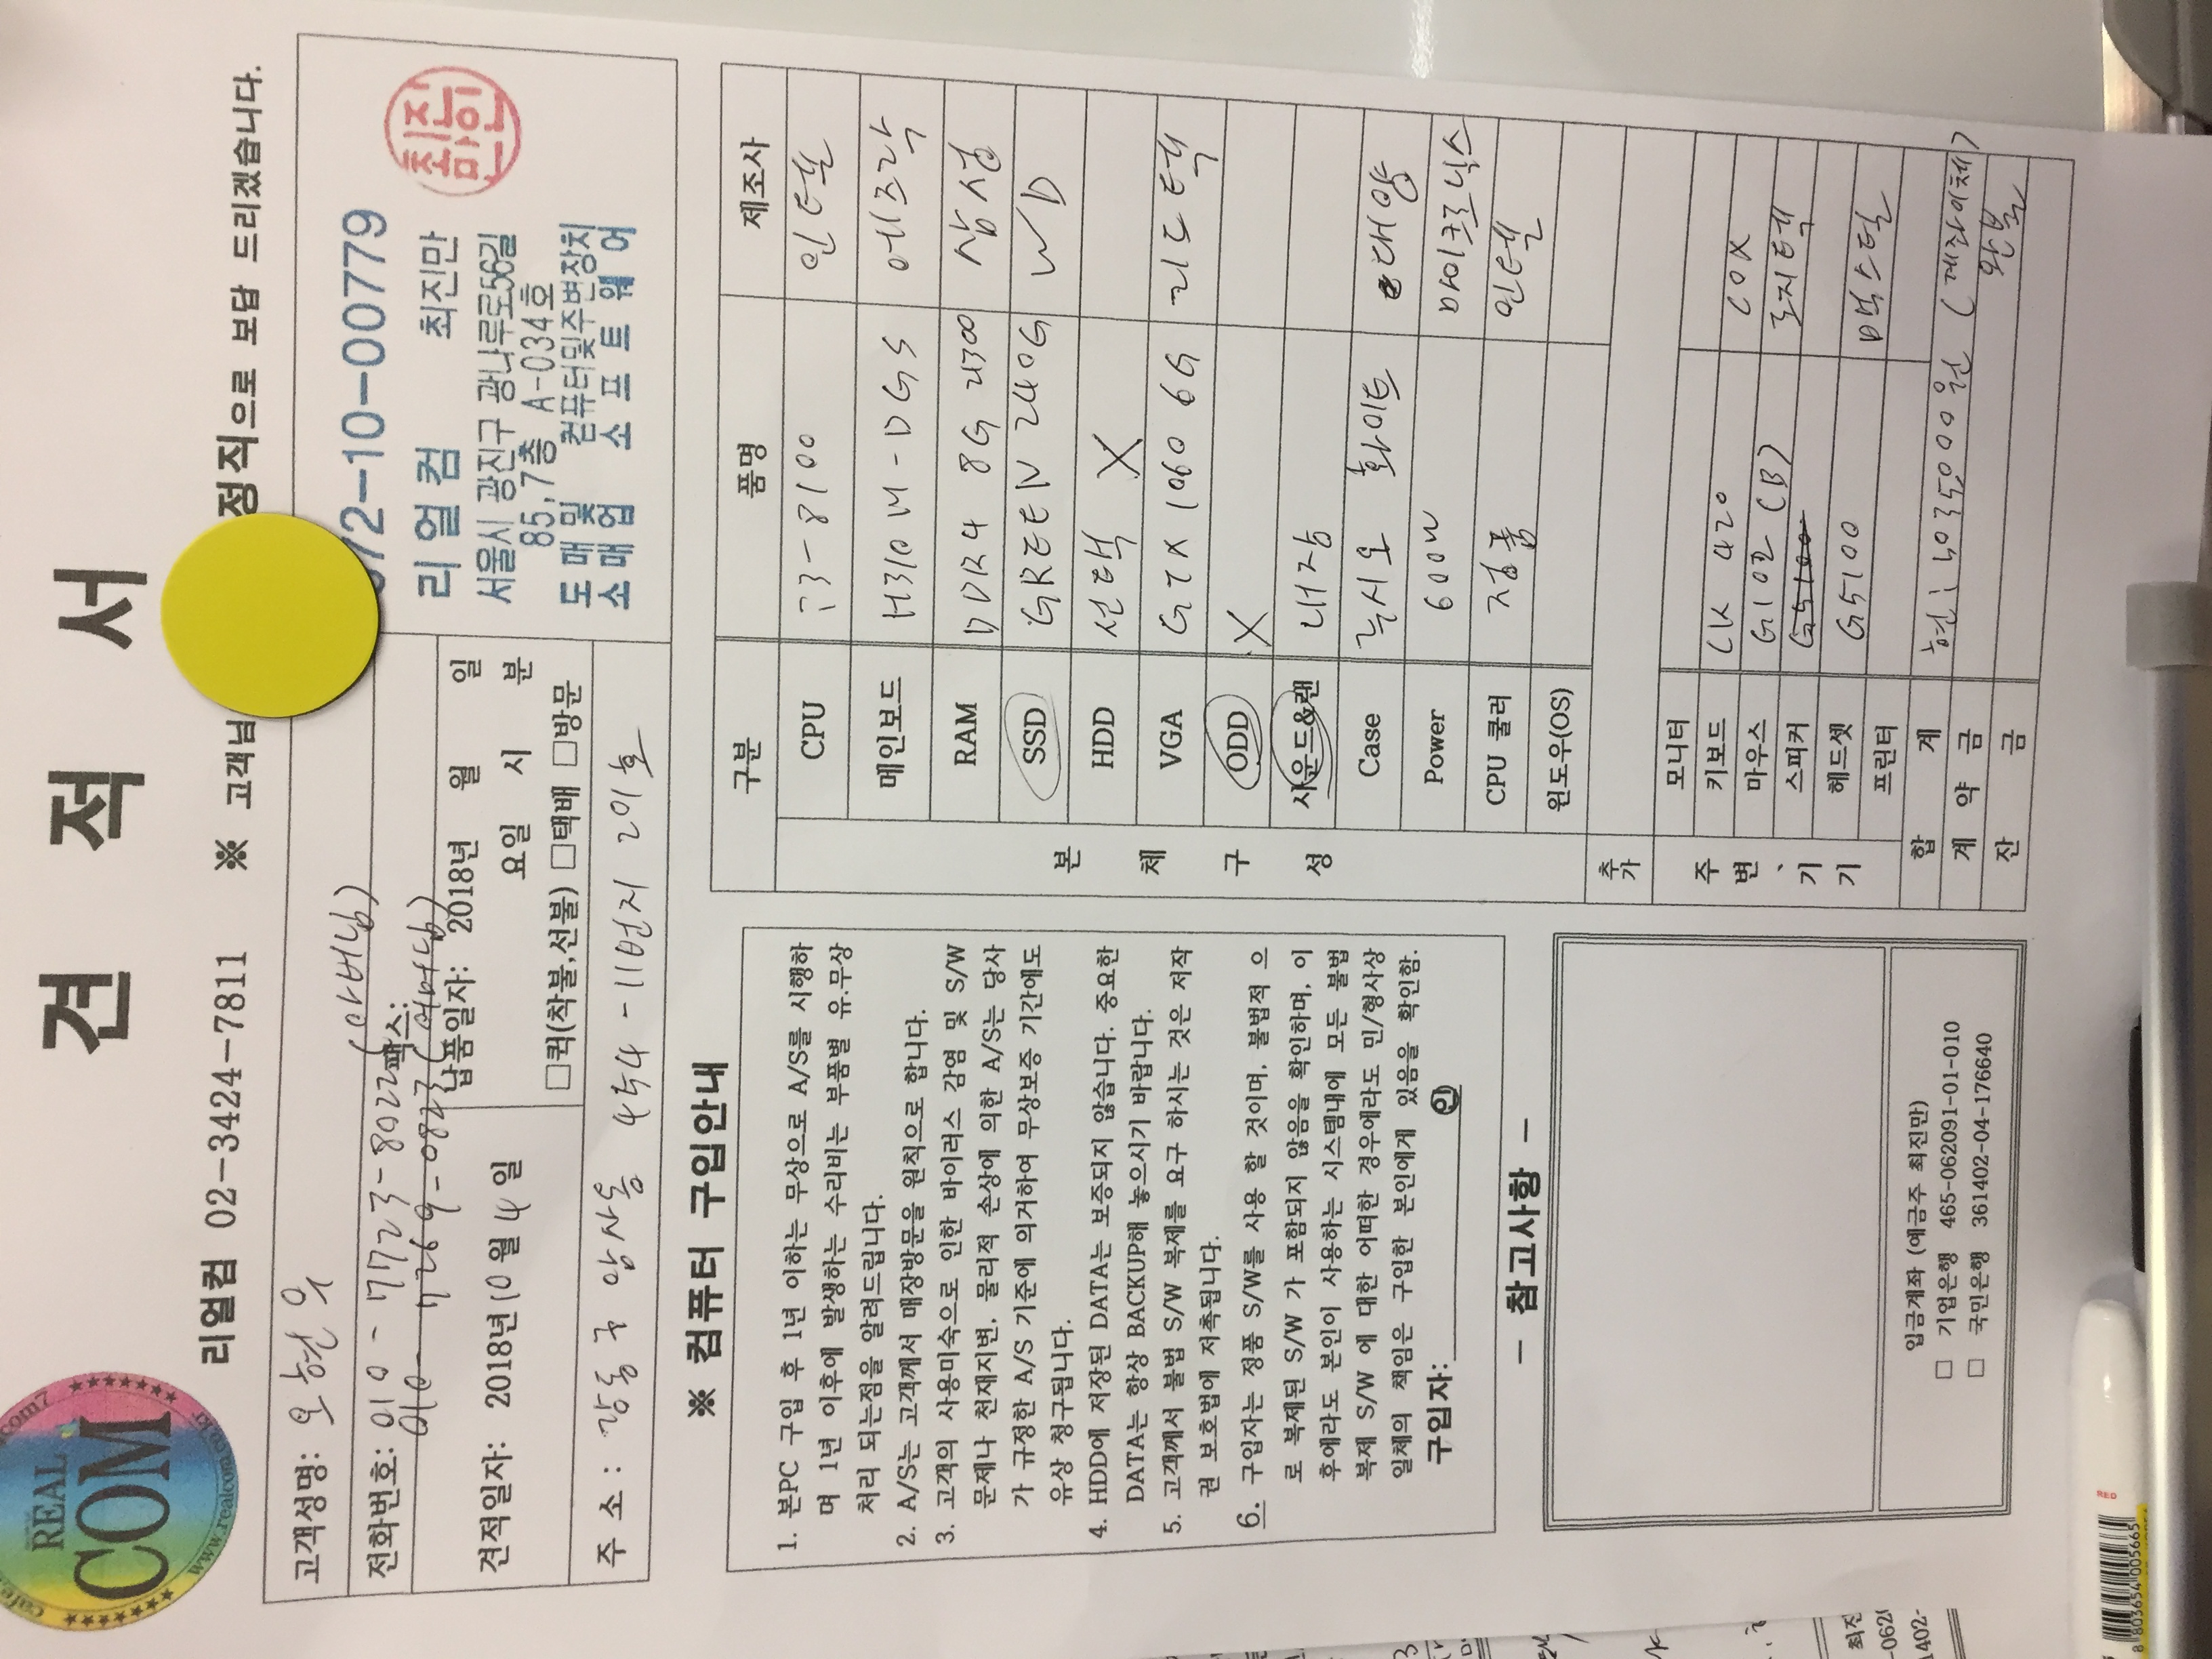 견 적 서
REAL
COM
리얼컴 02-3424-7811 ※ 고객님 정직으로 보답 드리겠습니다.
고객성명:
전화번호: 010-7723-8022 (아버님)
팩스:
010-7269-0823 (어머님)
견적일자: 2018년 10월 4일
납품일자: 2018년 월 일
요일 시 분
□퀵(착불,선불) □택배 □방문
주 소: 강동구 암사동 454-11번지 201호
72-10-00779
리얼컴 최진만
서울시 광진구 광나루로56길
85,7층 A-034호
도매및 컴퓨터및주변장치
소매업 소프트웨어
최진만인
※ 컴퓨터 구입안내
1. 본PC 구입 후 1년 이하는 무상으로 A/S를 시행하
며 1년 이후에 발생하는 수리비는 부품별 유.무상
처리 되는점을 알려드립니다.
2. A/S는 고객께서 매장방문을 원칙으로 합니다.
3. 고객의 사용미숙으로 인한 바이러스 감염 및 S/W
문제나 천재지변, 물리적 손상에 의한 A/S는 당사
가 규정한 A/S 기준에 의거하여 무상보증 기간에도
유상 청구됩니다.
4. HDD에 저장된 DATA는 보증되지 않습니다. 중요한
DATA는 항상 BACKUP해 놓으시기 바랍니다.
5. 고객께서 불법 S/W 복제를 요구 하시는 것은 저작
권 보호법에 저촉됩니다.
6. 구입자는 정품 S/W를 사용 할 것이며, 불법적 으
로 복제된 S/W 가 포함되지 않음을 확인하며, 이
후에라도 본인이 사용하는 시스템내에 모든 불법
복제 S/W 에 대한 어떠한 경우에라도 민/형사상
일체의 책임은 구입한 본인에게 있음을 확인함.
구입자: 인
- 참고사항 -
입금계좌 (예금주 최진만)
□ 기업은행 465-062091-01-010
□ 국민은행 361402-04-176640
구분 품명 제조사
본 체 구 성
CPU i3-8100 인텔
메인보드 H310M-DGS 에즈락
RAM DDR4 8G 21300 삼성
SSD GREEN 240G WD
HDD 선택 X
VGA GTX 1060 6G 리드텍
ODD X
사운드&랜 내장
Case 녹시오 화이트 대양
Power 600W 마이크로닉스
CPU 쿨러 정품 인텔
윈도우(OS)
추가
주 변 기 기
모니터
키보드 CK 420 COX
마우스 G102 (B) 로지텍
스피커 G5100
헤드셋 G5100 맥스틸
프린터
합 계 현: 1,035,000원 (계좌이체)
계 약 금 완불
잔 금
RED
8 803654 005665